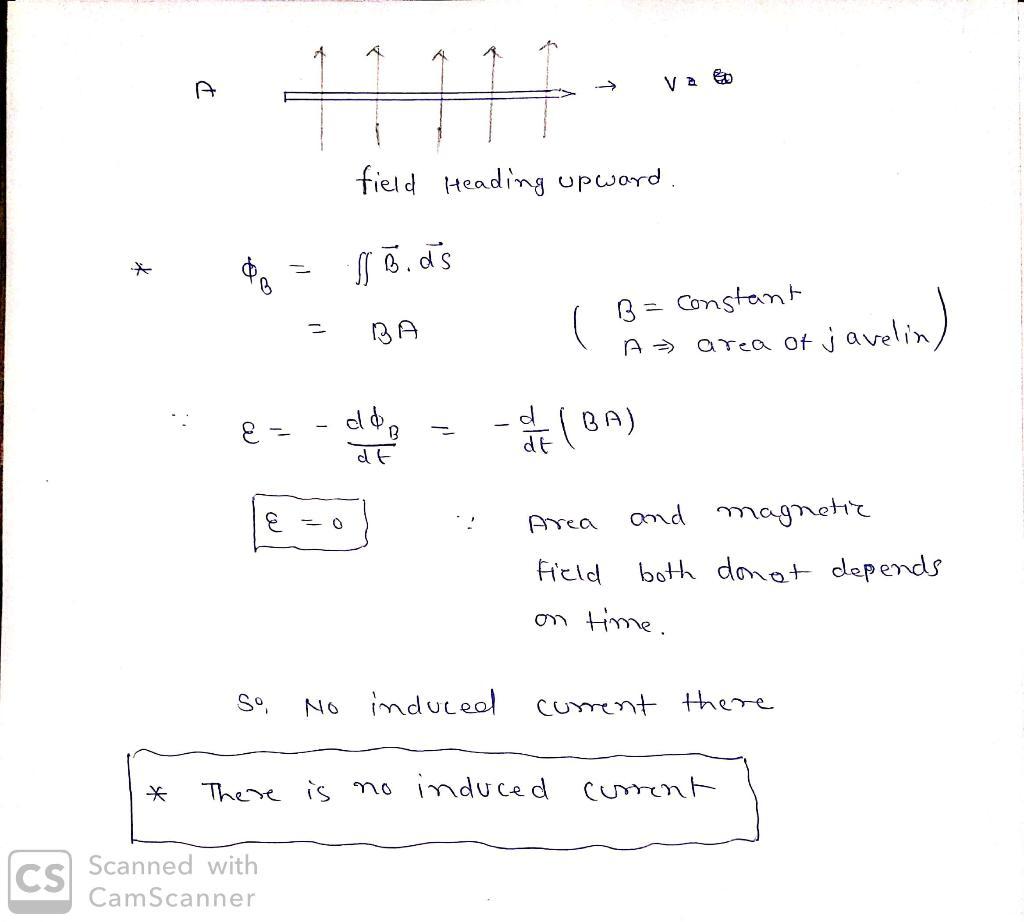 A → V =
field Heading upward.
* ϕ_B = ∬ B⃗ . d⃗s
= BA ( B = constant
A ⇒ area of javelin )
∵ ε = - dϕ_B/dt = - d/dt (BA)
ε = 0 ∵ Area and magnetic
field both donot depends
on time.
So, No induced current there
* There is no induced current
CS Scanned with
CamScanner